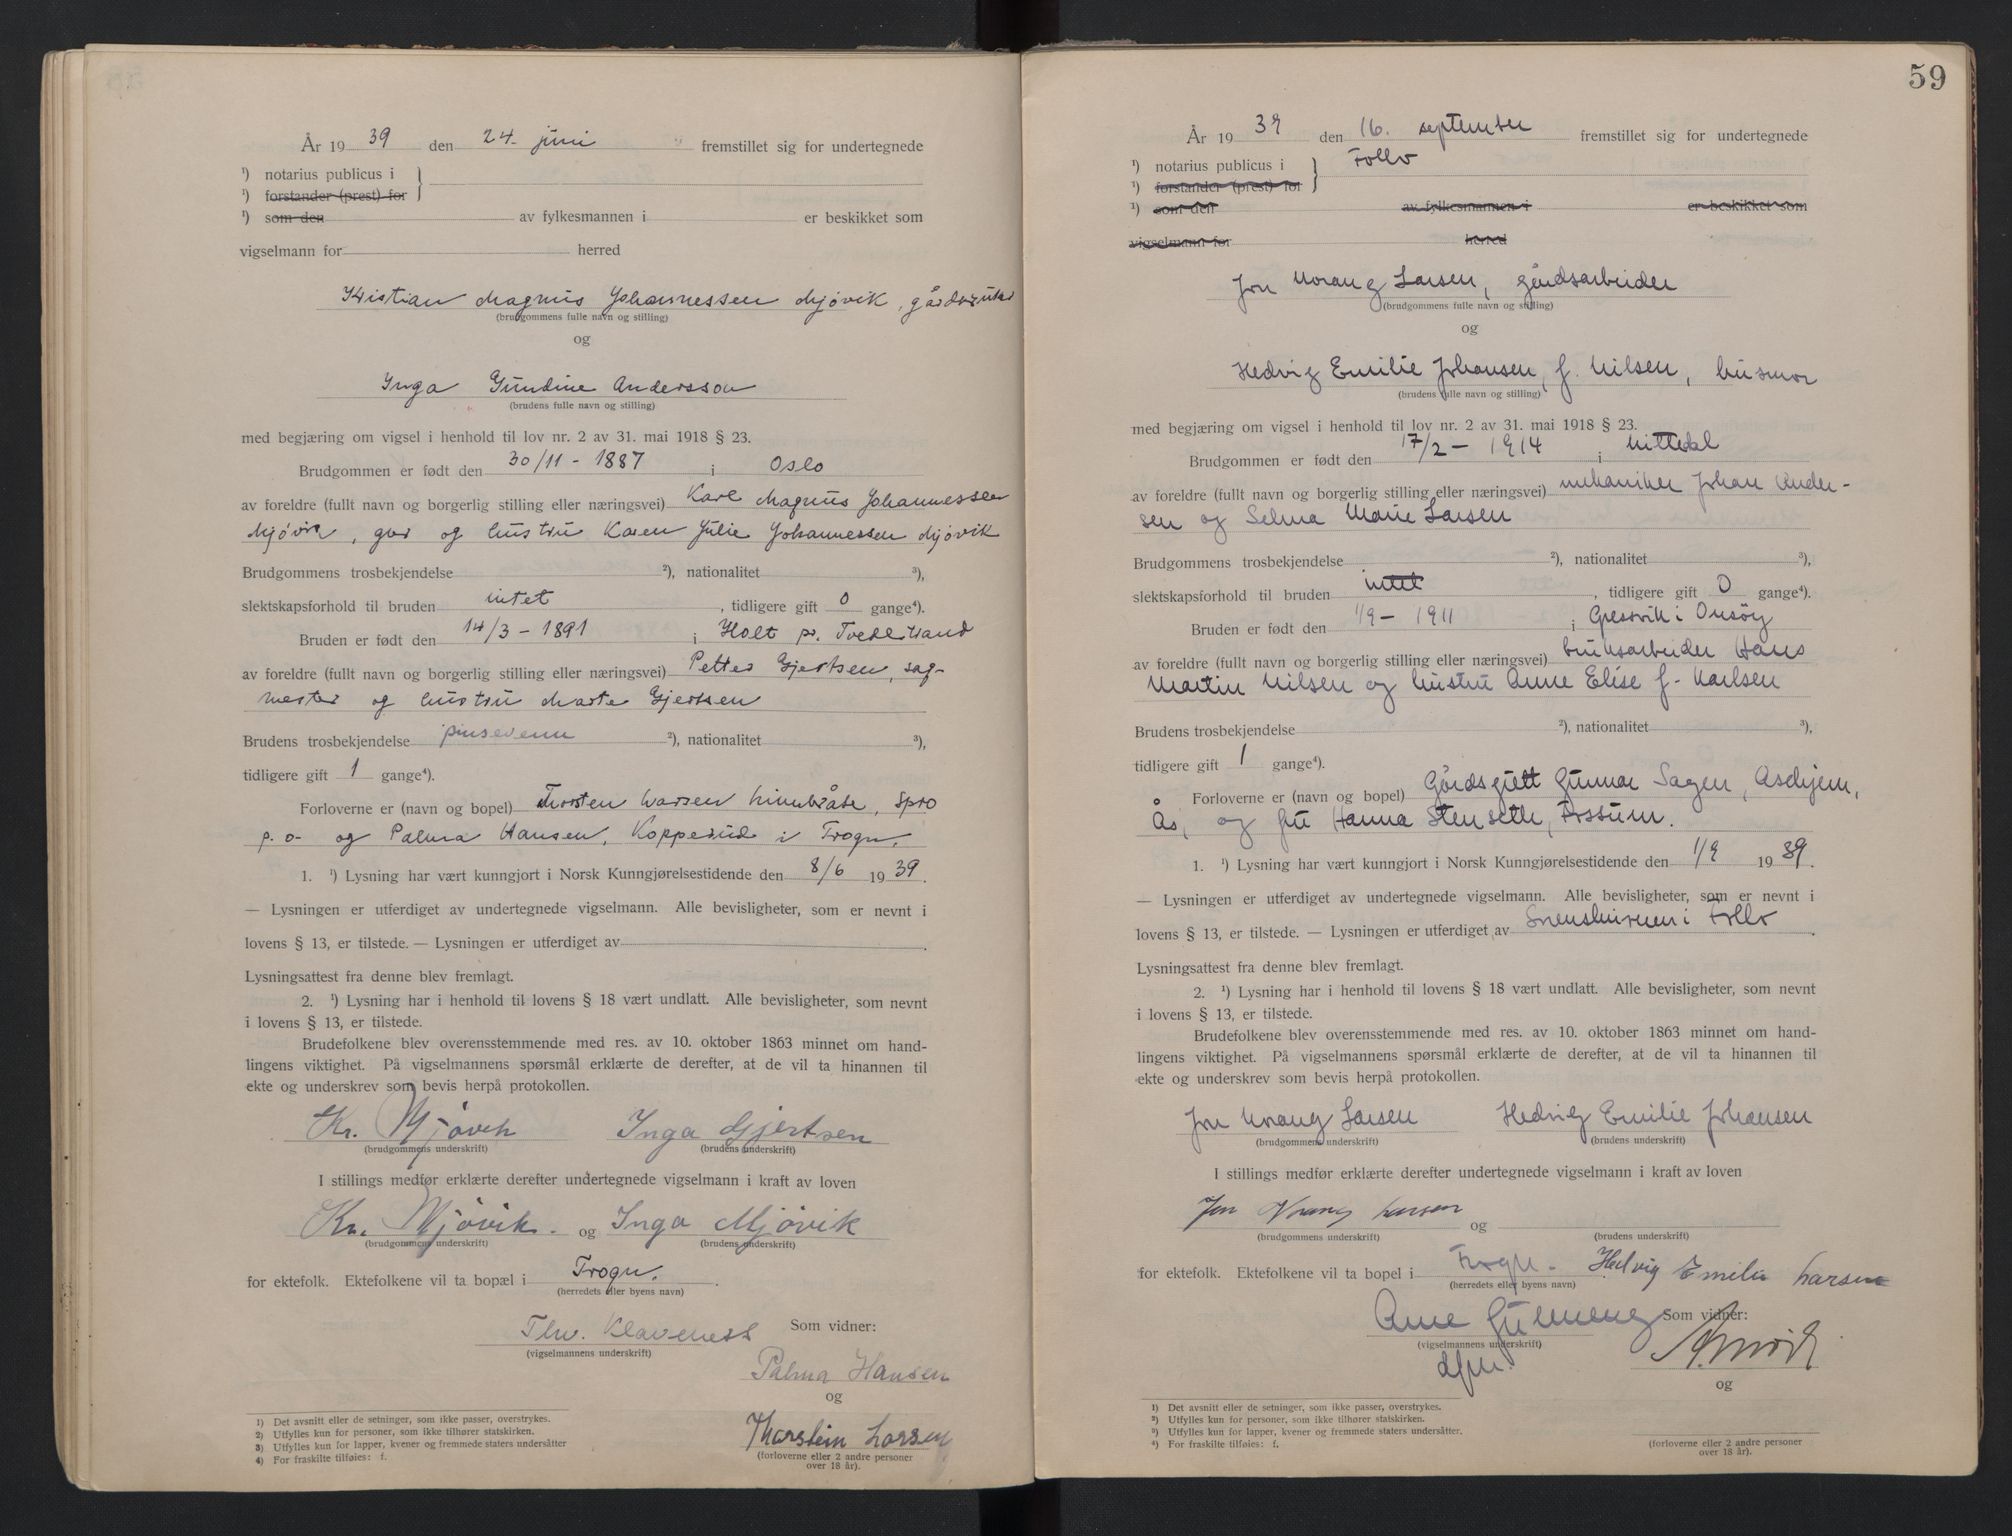 År 19 39 den 24. juni fremstillet sig for undertegnede
¹) notarius publicus i
¹) forstander (prest) for
¹) som den av fylkesmannen i er beskikket som
vigselmann for herred
Kristian Magnus Johannessen Mjøvik, gårdbruker
(brudgommens fulle navn og stilling)
og
Inga Gundine Andersson
(brudens fulle navn og stilling)
med begjæring om vigsel i henhold til lov nr. 2 av 31. mai 1918 § 23.
Brudgommen er født den 30/11 - 1887 i Oslo
av foreldre (fullt navn og borgerlig stilling eller næringsvei) Karl Magnus Johannessen
Mjøvik, gbr og hustru Karen Julie Johannessen Mjøvik
Brudgommens trosbekjendelse ²), nationalitet ³),
slektskapsforhold til bruden intet, tidligere gift 0 gange⁴).
Bruden er født den 14/3 - 1891 i Holt pr. Tvedestrand
av foreldre (fullt navn og borgerlig stilling eller næringsvei) Petter Gjertsen, sag-
mester og hustru Marte Gjertsen
Brudens trosbekjendelse pinsevenn ²), nationalitet ³),
tidligere gift 1 gange⁴).
Forloverne er (navn og bopel) Thorsten Larsen Linnbråte, Spro
p.o. og Palma Hansen, Kopperud i Frogn.
1. ¹) Lysning har vært kunngjort i Norsk Kunngjørelsestidende den 8/6 1939.
— Lysningen er utferdiget av undertegnede vigselmann. Alle bevisligheter, som er nevnt i
lovens § 13, er tilstede. — Lysningen er utferdiget av .
Lysningsattest fra denne blev fremlagt.
2. ¹) Lysning har i henhold til lovens § 18 vært undlatt. Alle bevisligheter, som nevnt
i lovens § 13, er tilstede.
Brudefolkene blev overensstemmende med res. av 10. oktober 1863 minnet om hand-
lingens viktighet. På vigselmannens spørsmål erklærte de derefter, at de vil ta hinannen til
ekte og underskrev som bevis herpå protokollen.
Kr. Mjøvik Inga Gjertsen
(brudgommens underskrift) (brudens underskrift)
I stillings medfør erklærte derefter undertegnede vigselmann i kraft av loven
Kr. Mjøvik. og Inga Mjövik
(brudgommens underskrift) (brudens underskrift)
for ektefolk. Ektefolkene vil ta bopæl i Frogn.
(herredets eller byens navn)
Thv. Klaveness Som vidner:
(vigselmannens underskrift)
Palma Hansen
og
Thorstein Larsen
(forloverne eller 2 andre personer
over 18 år).
1) Det avsnitt eller de setninger, som ikke passer, overstrykes.
2) Utfylles kun for personer, som ikke tilhører statskirken.
3) Utfylles kun for lapper, kvener og fremmede staters undersåtter
4) For fraskilte tilføies: f.
59
År 19 39 den 16. september fremstillet sig for undertegnede
¹) notarius publicus i Follo
¹) forstander (prest) for
¹) som den av fylkesmannen i er beskikket som
vigselmann for herred
Jon Vrang Larsen, gårdsarbeider
(brudgommens fulle navn og stilling)
og
Hedvig Emilie Johansen, f. Nilsen, husmor
(brudens fulle navn og stilling)
med begjæring om vigsel i henhold til lov nr. 2 av 31. mai 1918 § 23.
Brudgommen er født den 17/2 - 1914 i Nittedal
av foreldre (fullt navn og borgerlig stilling eller næringsvei) mekaniker Johan Ander-
sen og Selma Marie Larsen
Brudgommens trosbekjendelse ²), nationalitet ³),
slektskapsforhold til bruden intet, tidligere gift 0 gange⁴).
Bruden er født den 1/9 - 1911 i Gressvik i Onsøy
av foreldre (fullt navn og borgerlig stilling eller næringsvei) bruksarbeider Hans
Martin Nilsen og hustru Anne Elise f. Karlsen
Brudens trosbekjendelse ²), nationalitet ³),
tidligere gift 1 gange⁴).
Forloverne er (navn og bopel) Gårdsgutt Gunnar Sagen, Askjem,
Ås, og fru Hanna Stenseth, Fossum.
1. ¹) Lysning har vært kunngjort i Norsk Kunngjørelsestidende den 1/9 1939.
— Lysningen er utferdiget av undertegnede vigselmann. Alle bevisligheter, som er nevnt i
lovens § 13, er tilstede. — Lysningen er utferdiget av Sorenskriveren i Follo.
Lysningsattest fra denne blev fremlagt.
2. ¹) Lysning har i henhold til lovens § 18 vært undlatt. Alle bevisligheter, som nevnt
i lovens § 13, er tilstede.
Brudefolkene blev overensstemmende med res. av 10. oktober 1863 minnet om hand-
lingens viktighet. På vigselmannens spørsmål erklærte de derefter, at de vil ta hinannen til
ekte og underskrev som bevis herpå protokollen.
Jon Vrang Larsen Hedvig Emilie Johansen
(brudgommens underskrift) (brudens underskrift)
I stillings medfør erklærte derefter undertegnede vigselmann i kraft av loven
Jon Vrang Larsen og
(brudgommens underskrift) (brudens underskrift)
for ektefolk. Ektefolkene vil ta bopel i Frogn. Hedvig Emilie Larsen
(herredets eller byens navn)
Arne Som vidner:
(vigselmannens underskrift)
dfm.
og
(forloverne eller 2 andre personer
over 18 år).
1) Det avsnitt eller de setninger, som ikke passer, overstrykes.
2) Utfylles kun for personer, som ikke tilhører statskirken.
3) Utfylles kun for lapper, kvener og fremmede staters undersåtter.
4) For fraskilte tilføies: f.